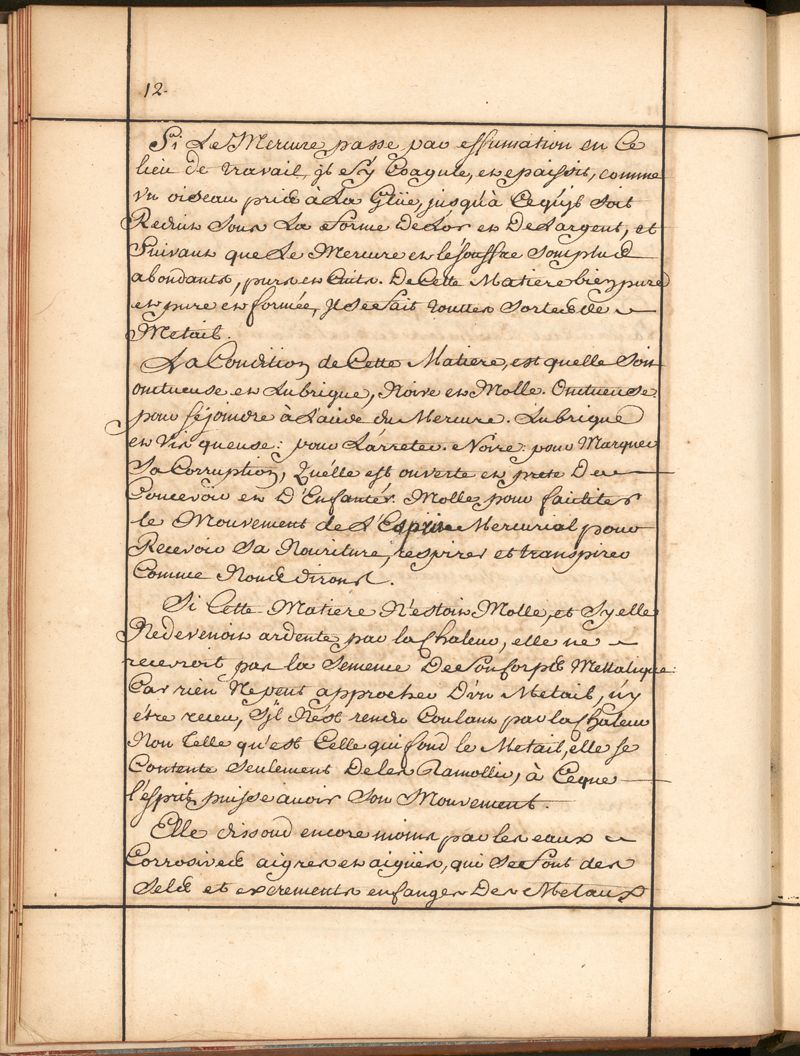 12.
Si Le Mercure passe par effumation en Ce
lieu de travail, jl s'y Coagule, et epaissit, comme
vn oiseau pris à La Glüe, jusqu'à Ce qu'jl soit
Reduit sous La forme De L'or et De L'argent, et
Suivant que Le Mercure et le souffre sont plus
abondants, purs et Cuits. De Cette Matiere bien pure
et pure et formée, Jl se fait toutes sortes de
Metail.
La Condition de Cette Matiere, est quelle Soit
onctueuse et Lubrique, Noire et Molle. Onctueuse
pour se joindre à L'aide du Mercure. Lubrique
et Visqueuse: pour L'arreter. Noire: pour Marquer
Sa Corruption, Qu'elle est ouverte et prete De
Concevoir et D'Enfanter. Molle, pour faciliter
le Mouvement de L'Esprit Mercurial pour
Recevoir Sa Nouriture, respirer et transpirer
Comme Nous dirons.
Si Cette Matiere N'estoit Molle, et Sy elle
Redevenoit ardente par la Chaleur, elle ne
recevroit pas la Semence De Son Corps Mettalique:
Car rien Ne peut approcher D'vn Metail, n'y
être receu, S'jl N'est rendu Coulant par la Chaleur
Non Telle qu'est Celle qui fond le Metail, elle se
Contente Seulement De les Ramollir, à Ceque
l'esprit puisse avoir Son Mouvement.
Elle dissoud encore moins par les eaux
Corrosives aigres et aigües, qui Se font des
Sels et excrements en fanges Des Metaux